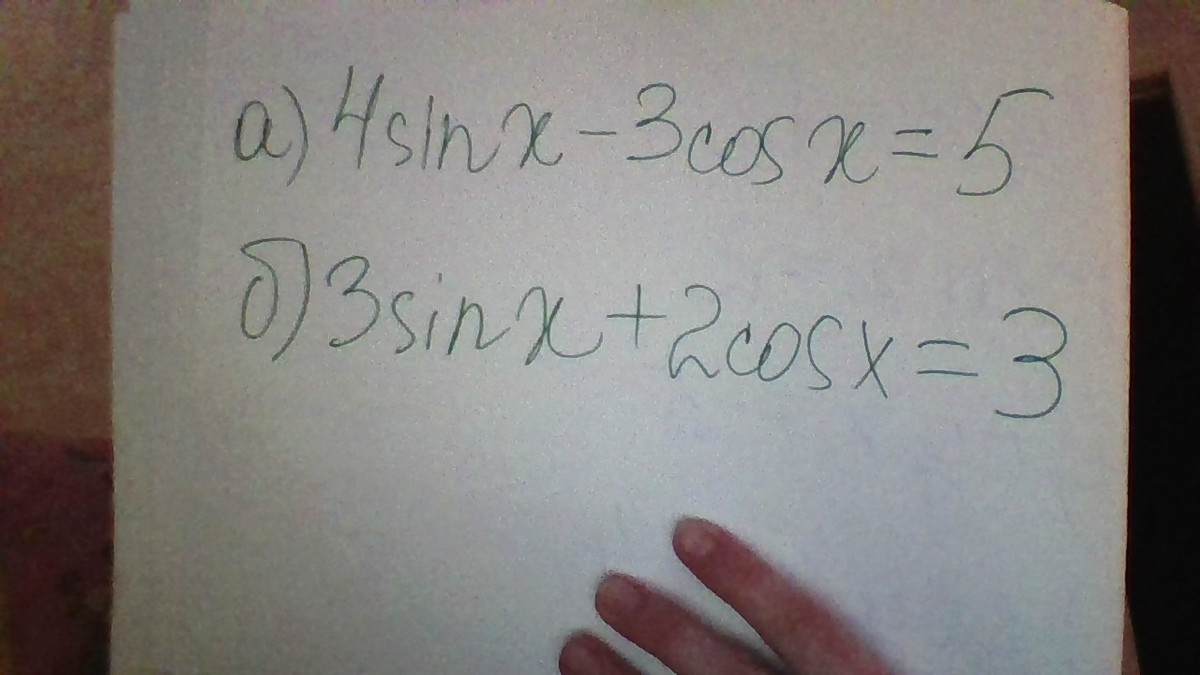 а) 4sinx-3cosx=5
б) 3sinx+2cosx=3